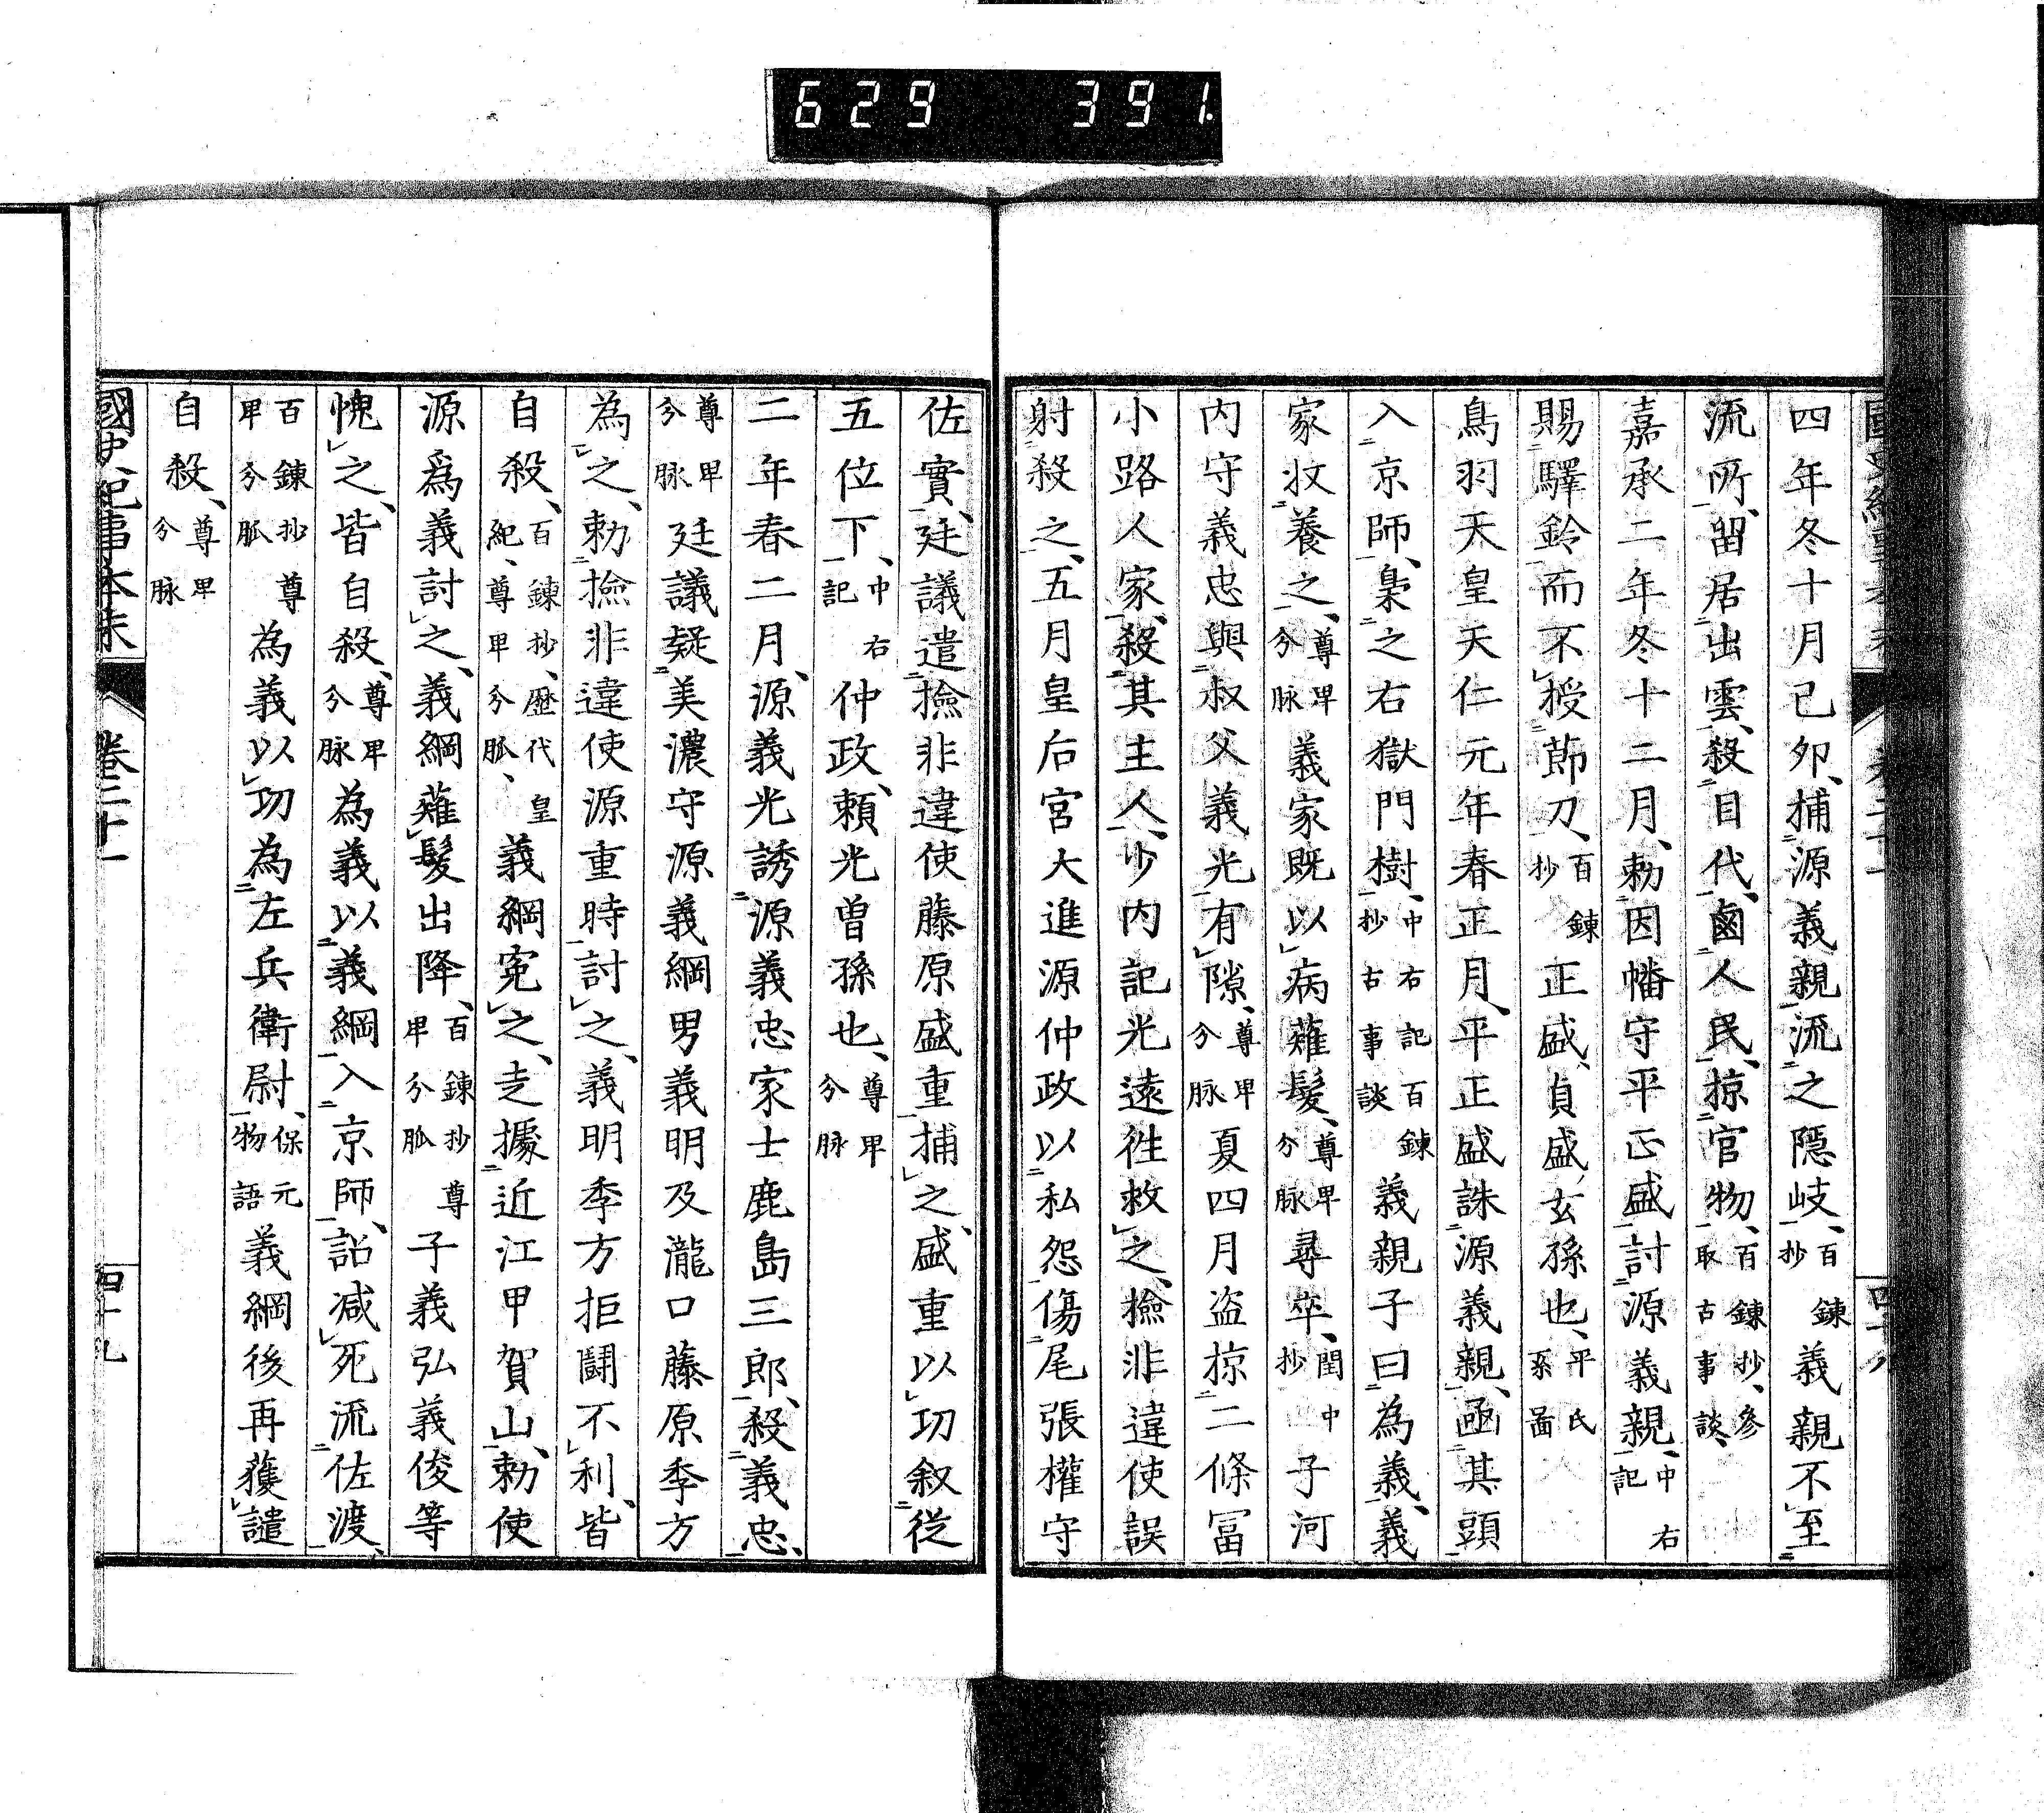 629 391.
四年冬十月己卯、捕源義親流之隱岐、百鍊抄義親不至
流所、留居出雲、殺目代、鹵人民、掠官物、百鍊抄、參取古事談、
嘉承二年冬十二月、勅因幡守平正盛討源義親、中右記
賜驛鈴而不授節刀、百鍊抄正盛、貞盛玄孫也、平氏系圖
鳥羽天皇天仁元年春正月、平正盛誅源義親、函其頭
入京師、梟之右獄門樹、中右記百鍊抄古事談義親子曰為義、義
家收養之、尊卑分脉義家既以病薙髮、尊卑分脉尋卒、中閏抄子河
内守義忠與叔父義光有隙、尊卑分脉夏四月盜掠二條冨
小路人家、殺其主人、少内記光遠徃救之、撿非違使誤
射殺之、五月皇后宮大進源仲政以私怨傷尾張權守
佐實、廷議遣撿非違使藤原盛重捕之、盛重以功叙從
五位下、中右記仲政、頼光曽孫也、尊卑分脉
二年春二月、源義光誘源義忠家士鹿島三郎、殺義忠、
尊卑分脉廷議疑美濃守源義綱男義明及瀧口藤原季方
為之、勅撿非違使源重時討之、義明季方拒鬪不利、皆
自殺、百鍊抄、歷代皇紀、尊卑分脈、義綱寃之、走據近江甲賀山、勅使
源爲義討之、義綱薙髮出降、百鍊抄尊卑分脈子義弘義俊等
愧之、皆自殺、尊卑分脉為義以義綱入京師、詔减死流佐渡、
百鍊抄尊卑分脈為義以功為左兵衛尉、保元物語義綱後再獲譴
自殺、尊卑分脉
國史紀事本末 卷二十一 四十九